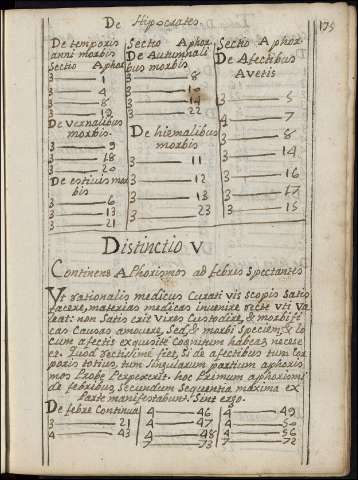 De Hipocrates
175
De temporis
anni morbis
Sectio Aphor
3 — 1
3 — 4
3 — 8
3 — 19
De Vernalibus
morbis.
3 — 9
3 — 18
3 — 20
De estiuis mor
bis
3 — 6
3 — 13
3 — 21
Sectio Aphor
De Autumnali
bus morbis
3 — 8
3 — 10
3 — 14
3 — 22
De hiemalibus
morbis
3 — 11
3 — 12
3 — 13
3 — 23
Sectio Aphor
De Afectibus
Avetis
3 — 5
4 — 7
3 — 8
3 — 14
3 — 16
3 — 17
3 — 15
Distinctio V
Continens Aphorismos ad febris Spectantes
Vt rationalis medicus Curati vis scopis Satis
facere, materias medicas inuenire recte uti Va
leat: non Satis erit Vires Custodire, & morbifi
cas Causas amouere, Sed, & morbi Speciem, & lo
cum afectis exquisite Cognitum habeat neces
e
st. Quod rectissime fiet, Si de afectibus tum Cor
poris totius, tum Singularum partium aphoris
mos Probe Perpexerit. hoc Primum aphorismi
de febribus Secundum Sequentia maxima ex
Parte manifestabunt. Sint ergo.
De febre Continua
3 — 21
4 — 43
4 — 46
4 — 47
4 — 48
7 — 73
4 — 49
4 — 50
4 — 56
7 — 72